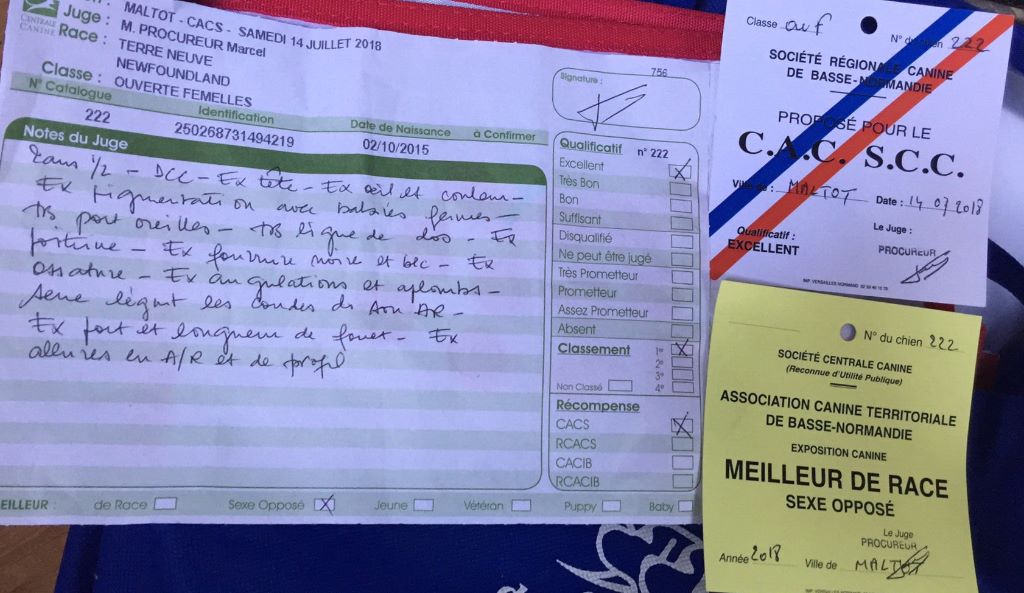 CENTRALE
CANINE
MALTOT - CACS - SAMEDI 14 JUILLET 2018
Juge : M. PROCUREUR Marcel
Race : TERRE NEUVE
NEWFOUNDLAND
Classe : OUVERTE FEMELLES
N° Catalogue Identification Date de Naissance à Confirmer
222 250268731494219 02/10/2015
Notes du Juge
2 ans 1/2 - DCC - Ex tête - Ex œil et couleur -
Ex pigmentation avec babines fermes -
TB port oreilles - TB ligne de dos - Ex
poitrine - Ex fourrure noire et bcc - Ex
ossature - Ex angulations et aplombs -
serre légnt les coudes ds son AR -
Ex port et longueur de fouet - Ex
allures en A/R et de profil
756
Signature :
Qualificatif n° 222
Excellent X
Très Bon
Bon
Suffisant
Disqualifié
Ne peut être jugé
Très Prometteur
Prometteur
Assez Prometteur
Absent
Classement 1er X
2e
3e
Non Classé 4e
Récompense
CACS X
RCACS
CACIB
RCACIB
EILLEUR : de Race Sexe Opposé X Jeune Vétéran Puppy Baby
Classe ouf N° du chien 222
SOCIÉTÉ RÉGIONALE CANINE
DE BASSE-NORMANDIE
PROPOSÉ POUR LE
C.A.C. S.C.C.
Ville de : MALTOT Date : 14 07 2018
Qualificatif : Le Juge :
EXCELLENT PROCUREUR
IMP. VERSAILLES NORMAND
N° du chien 222
SOCIÉTÉ CENTRALE CANINE
(Reconnue d'Utilité Publique)
ASSOCIATION CANINE TERRITORIALE
DE BASSE-NORMANDIE
EXPOSITION CANINE
MEILLEUR DE RACE
SEXE OPPOSÉ
Le Juge
PROCUREUR
Année 2018 Ville de MALTOT